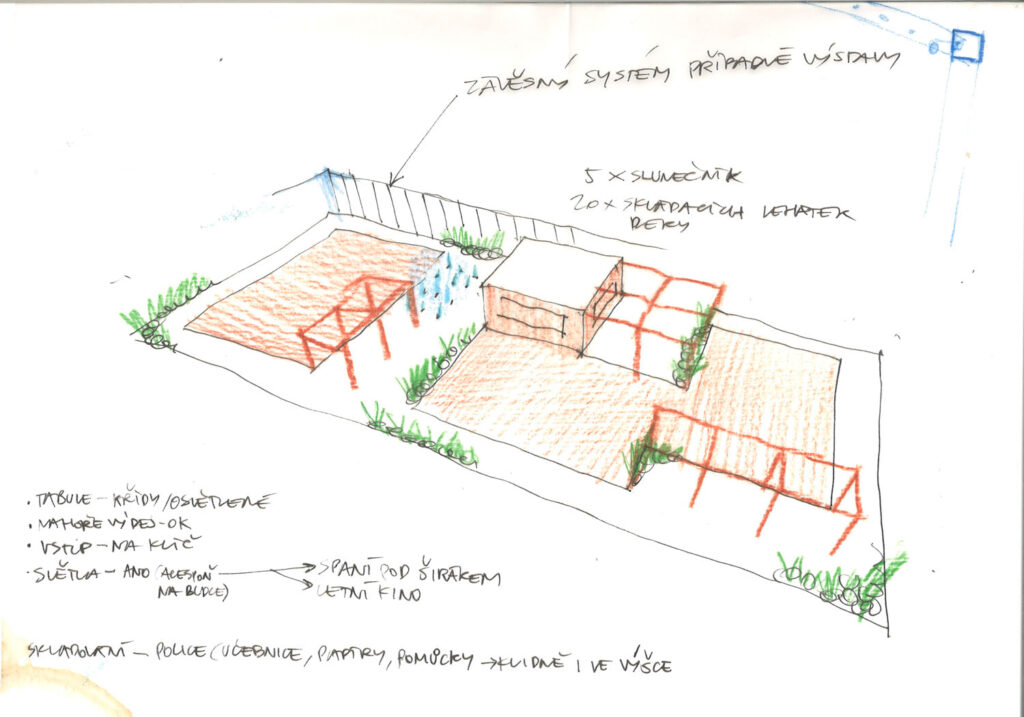 ZÁVĚSNÝ SYSTÉM PŘÍPADNÉ VÝSTAVY
5 X SLUNEČNÍK
20 X SKLÁDACÍCH LEHÁTEK
DEKY
• TABULE - KŘÍDY / OSVĚTLENÉ
• NAHOŘE VÝDEJ - OK
• VSTUP - NA KLÍČ
• SVĚTLA - ANO (ALESPOŇ → SPANÍ POD ŠIRÁKEM
NA BUDCE) → LETNÍ KINO
SKLADOVÁNÍ - POLICE (UČEBNICE, PAPÍRY, POMŮCKY → KLIDNĚ I VE VÝŠCE